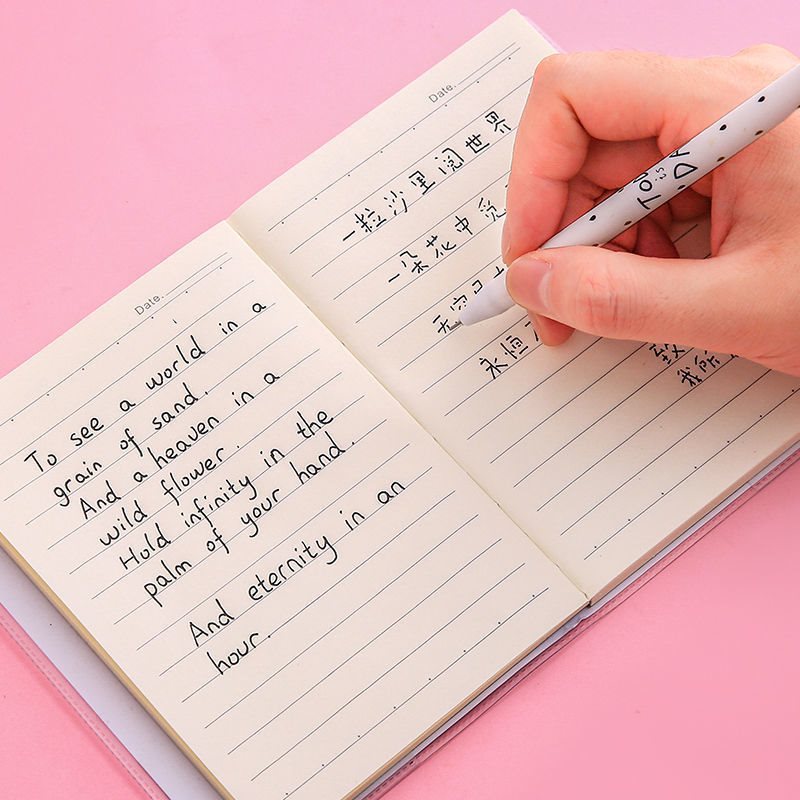 Date.
To see a world in a
grain of sand.
And a heaven in a
wild flower.
Hold infinity in the
palm of your hand.
And eternity in an
hour.
Date.
一粒沙里阅世界
一朵花中觅
无穷
永恒
致
我所